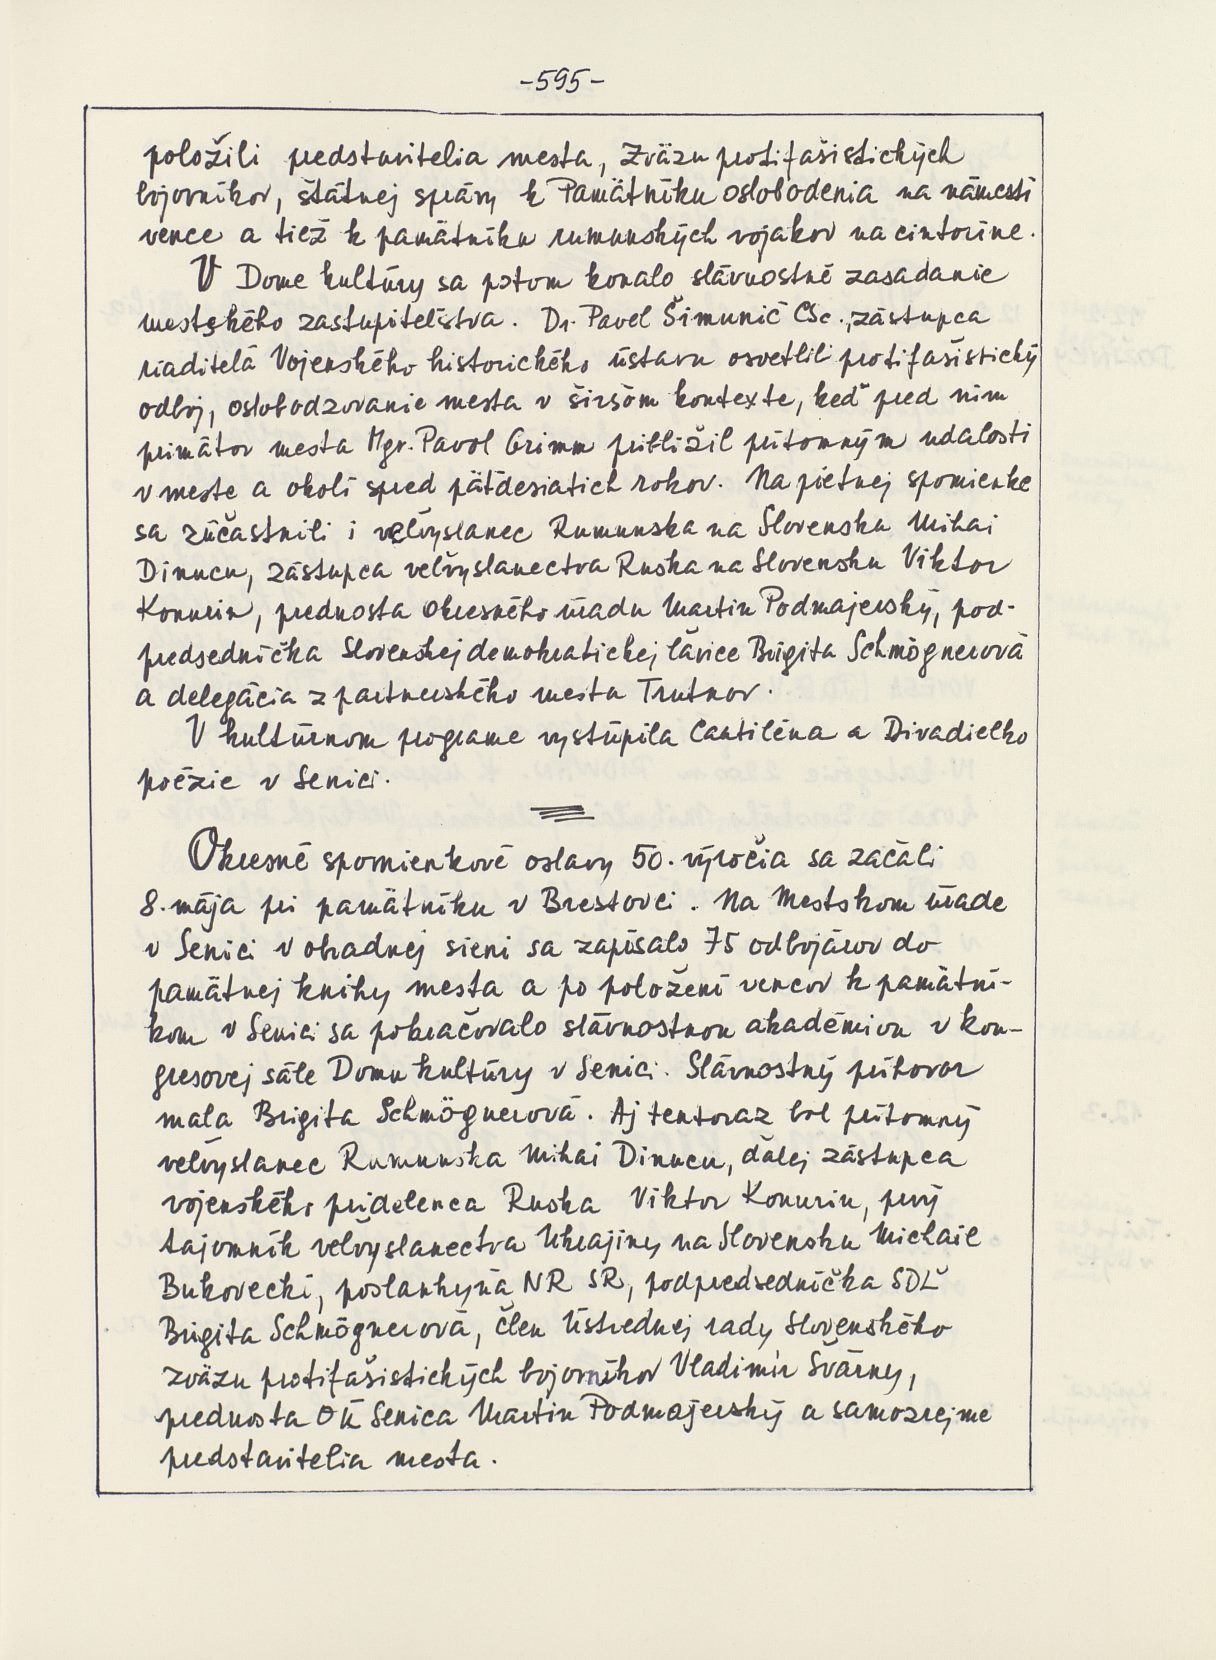 -595-
položili predstavitelia mesta, Zväzu protifašistických
bojovníkov, štátnej správy k Pamätníku oslobodenia na námestí
vence a tiež k pamätníku rumunských vojakov na cintoríne.
V Dome kultúry sa potom konalo slávnostné zasadanie
mestského zastupiteľstva. Dr. Pavel Šimunič CSc., zástupca
riaditeľa Vojenského historického ústavu osvetlil protifašistický
odboj, oslobodzovanie mesta v širšom kontexte, keď pred ním
primátor mesta Mgr. Pavol Grimm priblížil prítomným udalosti
v meste a okolí spred päťdesiatich rokov. Na pietnej spomienke
sa zúčastnili i veľvyslanec Rumunska na Slovensku Mihai
Dinucu, zástupca veľvyslanectva Ruska na Slovensku Viktor
Konurin, prednosta Okresného úradu Martin Podmajerský, pod-
predsedníčka Slovenskej demokratickej ľavice Brigita Schmögnerová
a delegácia z partnerského mesta Trutnov.
V kultúrnom programe vystúpila Cantiléna a Divadielko
poézie v Senici.
Okresné spomienkové oslavy 50. výročia sa začali
8. mája pri pamätníku v Brestovci. Na Mestskom úrade
v Senici v obradnej sieni sa zapísalo 75 odbojárov do
pamätnej knihy mesta a po položení vencov k pamätní-
kom v Senici sa pokračovalo slávnostnou akadémiou v kon-
gresovej sále Domu kultúry v Senici. Slávnostný príhovor
mala Brigita Schmögnerová. Aj tentoraz bol prítomný
veľvyslanec Rumunska Mihai Dinucu, ďalej zástupca
vojenského pridelenca Ruska Viktor Konurin, prvý
tajomník veľvyslanectva Ukrajiny na Slovensku Michail
Bukovecki, poslankyňa NR SR, podpredsedníčka SDĽ
Brigita Schmögnerová, člen Ústrednej rady Slovenského
zväzu protifašistických bojovníkov Vladimír Švárny,
prednosta OÚ Senica Martin Podmajerský a samozrejme
predstavitelia mesta.